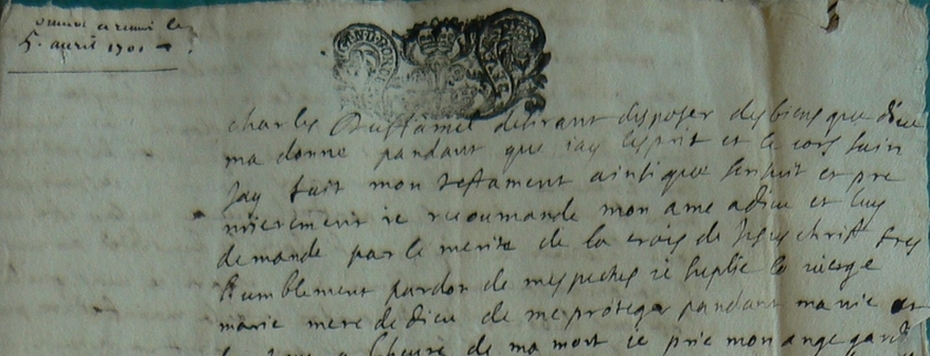 le
5. avril 1701
GEN. D. BORDE
charles Duhamel desirant disposer des biens que dieu
ma donne pandant que iay lesprit et le cors sain
Jay fait mon testament ainsi que sensuit et pre
mierement ie recoumande mon ame a dieu et luy
demande par le merite de la crois de Jesus christ tres
humblement pardon de mes peches ie suplie la vierge
marie mere de dieu de me proteger pandant ma vie et
a lheure de ma mort ie prie mon ange gard